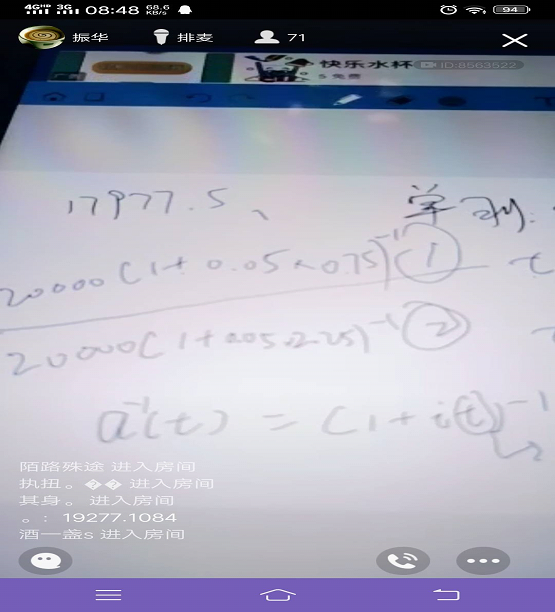 4G HD 3G 08:48 68.6 KB/s 94
振华 排麦 71
快乐水杯 ID:8563522
5 免费
17977.5、 单利:
20000(1+0.05×0.75)⁻¹ ① t
20000(1+0.05×2.25)⁻¹ ②
a⁻¹(t) = (1+i(t))⁻¹
陌路殊途 进入房间
执扭。�� 进入房间
其身。 进入房间
。: 19277.1084
酒一盏s 进入房间